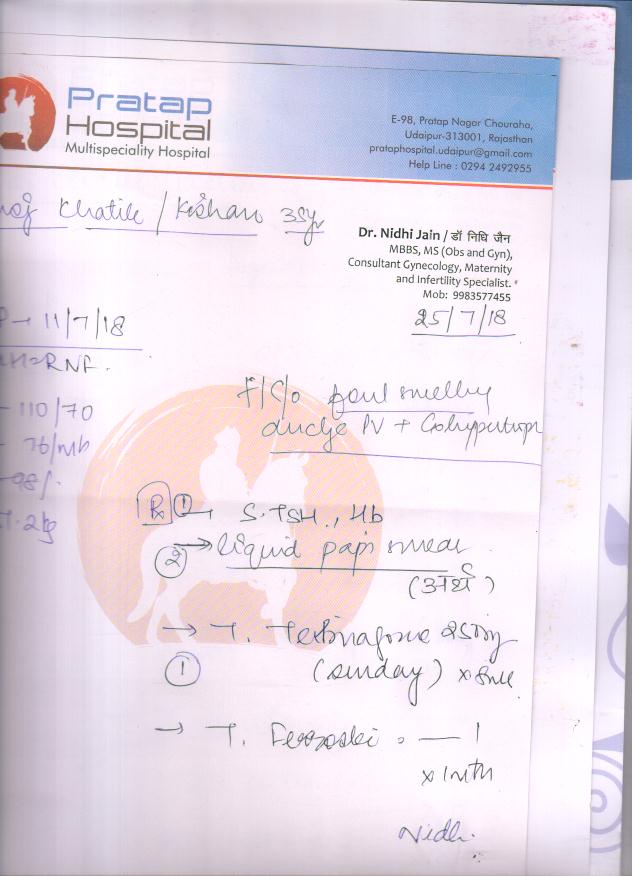 Pratap
Hospital
Multispeciality Hospital
E-98, Pratap Nagar Chouraha,
Udaipur-313001, Rajasthan
prataphospital.udaipur@gmail.com
Help Line : 0294 2492955
Khatik / Kishan 35yr
Dr. Nidhi Jain / डॉ निधि जैन
MBBS, MS (Obs and Gyn),
Consultant Gynecology, Maternity
and Infertility Specialist.
Mob: 9983577455
25/7/18
P → 11/7/18
RNF.
- 110/70
- 76/mb
98%
F/C/o foul smelling
PV +
Rx ① → S. TSH., Hb
② → liquid pap smear
→ T.
① (sunday)
→ T. — 1
x 1mth
Nidhi